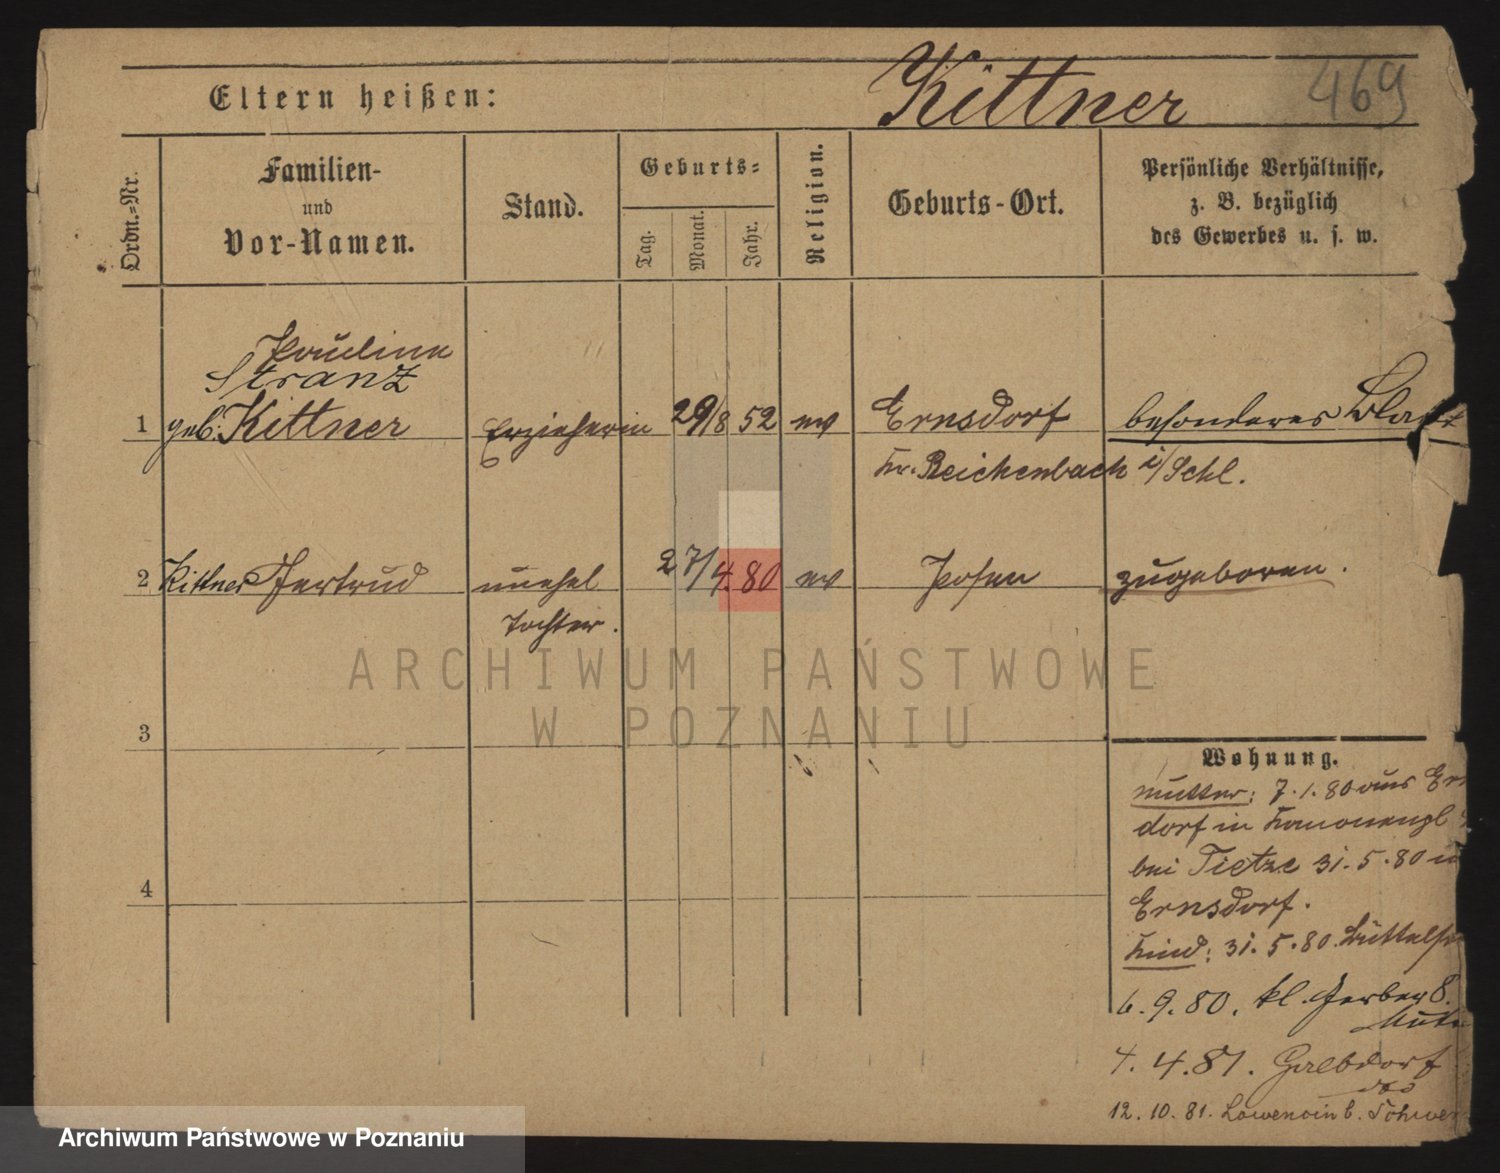 Eltern heißen: Kittner 469
Ordn.=Nr.
Familien-
und
Vor-Namen.
Stand.
Geburts=
Tag. Monat. Jahr.
Religion.
Geburts-Ort.
Persönliche Verhältnisse,
z. B. bezüglich
des Gewerbes u. s. w.
Pauline
Stranz
1 geb. Kittner Erzieherin 29/8 52 ev Ernsdorf besonderes Blatt
Kr. Reichenbach i/Schl.
2 Kittner Gertrud unehel 27/4. 80 ev Posen zugeboren.
Tochter.
ARCHIWUM PAŃSTWOWE
W POZNANIU
3
Wohnung.
Mutter: 7.1.80 aus
dorf in
bei Tietze 31.5.80
Ernsdorf.
4
Kind: 31.5.80.
6.9.80. kl. Gerber 8.
4.4.81.
12.10.81. b.
Archiwum Państwowe w Poznaniu